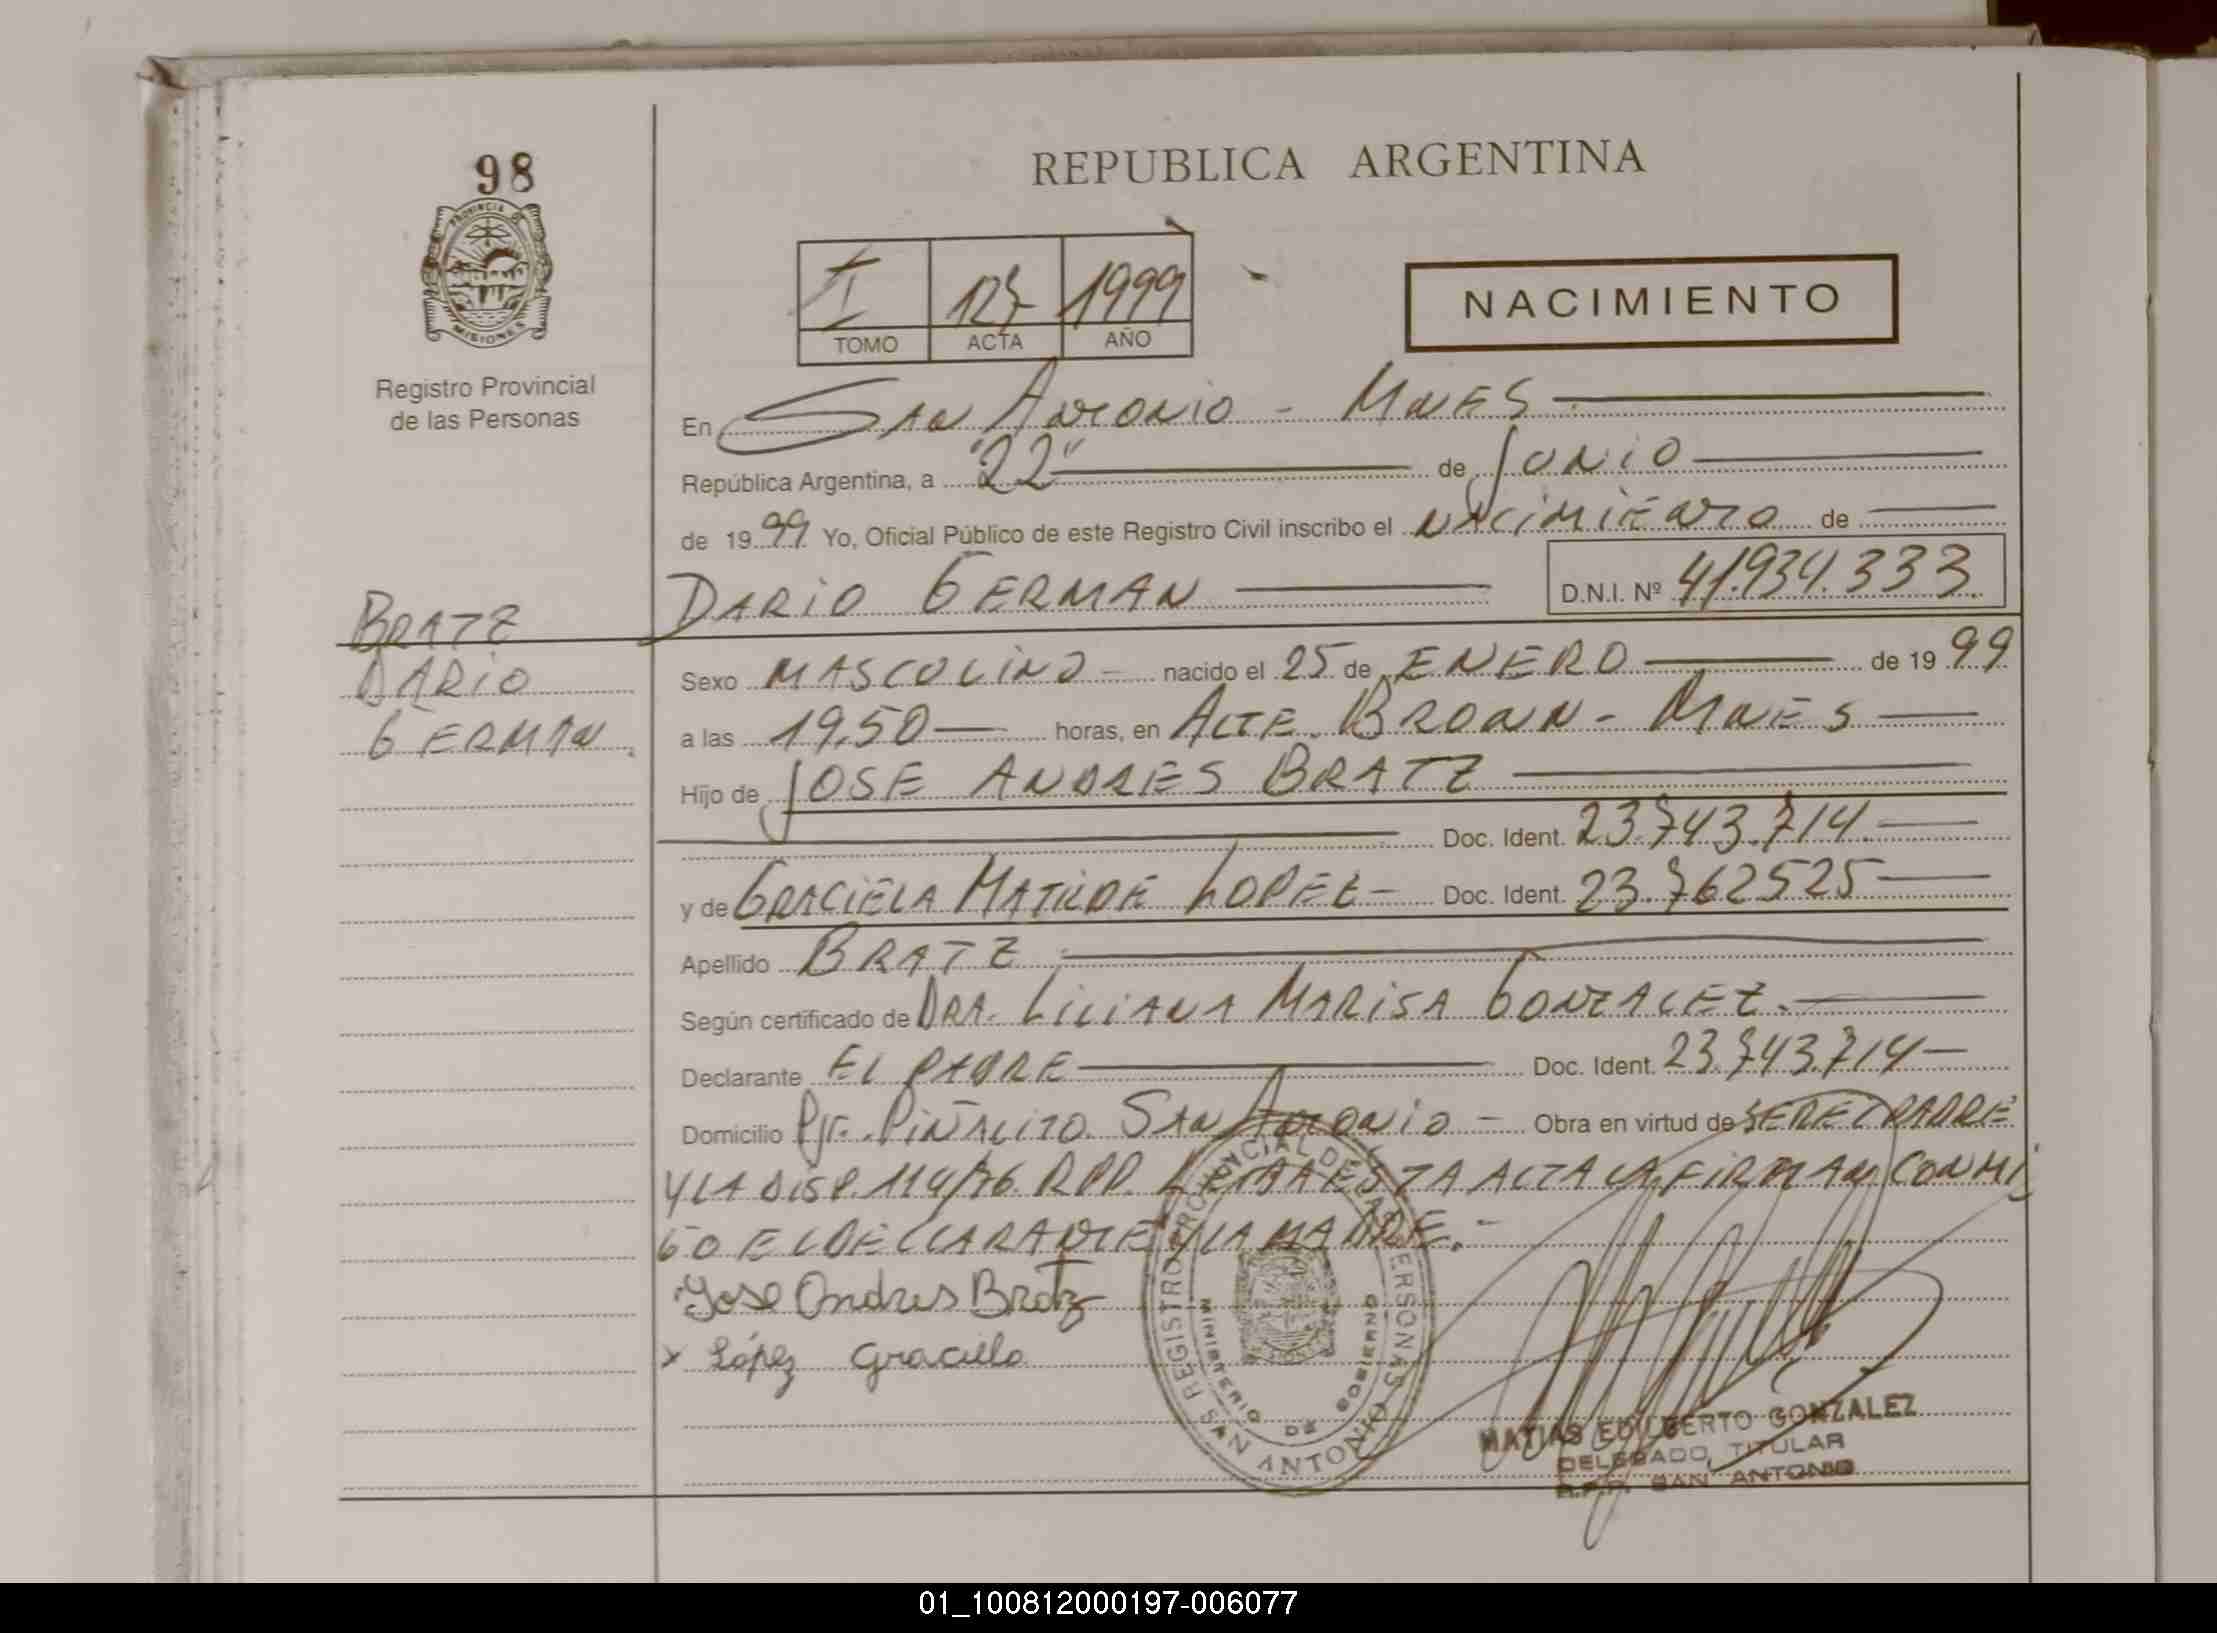 98
PROVINCIA DE
MISIONES
Registro Provincial
de las Personas
REPUBLICA ARGENTINA
I 127 1999
TOMO ACTA AÑO
NACIMIENTO
En SAN ANTONIO - MNES
República Argentina, a "22" de JUNIO
de 1999 Yo, Oficial Público de este Registro Civil inscribo el NACIMIENTO de
DARIO GERMAN D.N.I. Nº 41.934.333.
BRATZ
DARIO
GERMAN.
Sexo MASCULINO - nacido el 25 de ENERO de 1999
a las 19,50 horas, en ALTE. BROWN - MNES
Hijo de JOSE ANDRES BRATZ
Doc. Ident. 23.743.714.
y de GRACIELA MATILDE LOPEZ - Doc. Ident. 23.762525
Apellido BRATZ
Según certificado de DRA. LILIANA MARISA GONZALEZ.
Declarante EL PADRE Doc. Ident. 23.743.714
Domicilio PJE. PIÑALITO SAN ANTONIO - Obra en virtud de SER EL PADRE
Y LA DISP. 114/76. RPP. LEIDA ESTA ACTA LA FIRMAN CONMI
GO EL DECLARANTE Y LA MADRE.-
Jose Andres Bratz
x López Graciela
REGISTRO PROVINCIAL DE LAS PERSONAS
MINISTERIO DE GOBIERNO
SAN ANTONIO
MATIAS EDILBERTO GONZALEZ
DELEGADO TITULAR
R.P.P. SAN ANTONIO
01_100812000197-006077